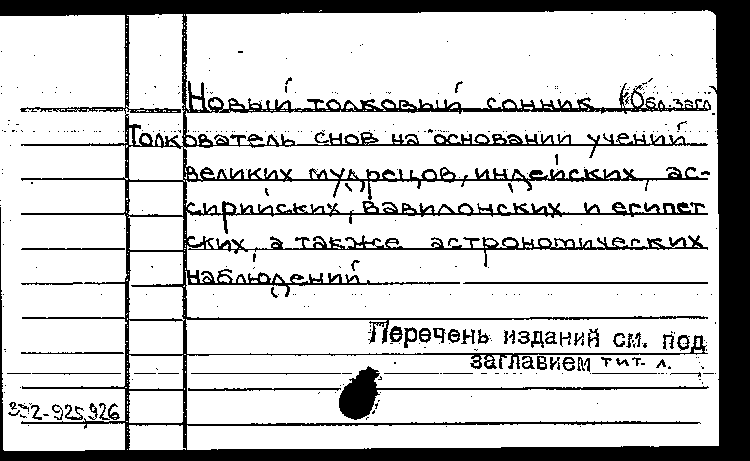 Новый толковый сонник. (Обл. загл)
Толкователь снов на основании учений
великих мудрецов, индейских, ас-
сирийских, вавилонских и египет
ских, а также астрономических
наблюдений.
Перечень изданий см. под
заглавием тит. л.
392-925,926